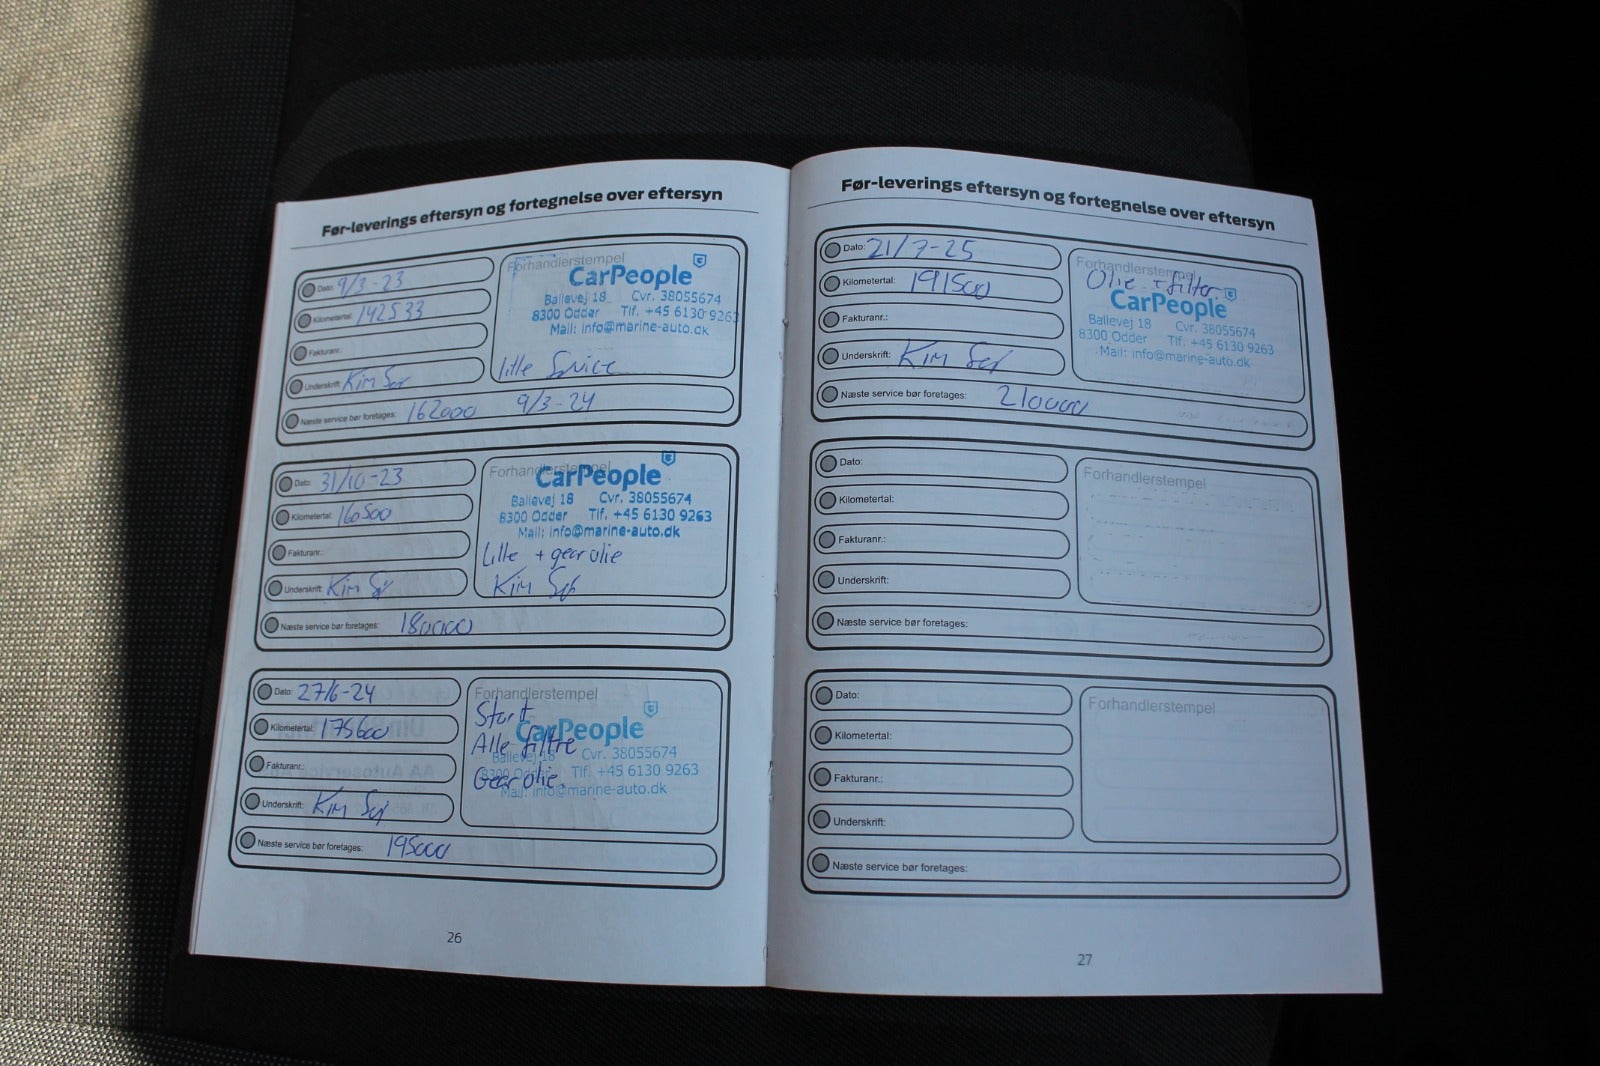 Før-leverings eftersyn og fortegnelse over eftersyn
Dato: 9/3-23
Kilometertal: 142533
Fakturanr.:
Underskrift: Kim
Næste service bør foretages: 162000 9/3-24
Forhandlerstempel
CarPeople
Ballevej 18 Cvr. 38055674
8300 Odder Tlf. +45 6130 9263
Mail: info@marine-auto.dk
lille Service
Dato: 31/10-23
Kilometertal: 160500
Fakturanr.:
Underskrift: Kim
Næste service bør foretages: 180000
Forhandlerstempel
CarPeople
Ballevej 18 Cvr. 38055674
8300 Odder Tlf. +45 6130 9263
Mail: info@marine-auto.dk
Lille + gear olie
Kim
Dato: 27/6-24
Kilometertal: 175600
Fakturanr.:
Underskrift: Kim
Næste service bør foretages: 195000
Forhandlerstempel
Stort
CarPeople
Alle filtre
Ballevej 18 Cvr. 38055674
8300 Odder Tlf. +45 6130 9263
Gear olie.
Mail: info@marine-auto.dk
26
Før-leverings eftersyn og fortegnelse over eftersyn
Dato: 21/7-25
Kilometertal: 191500
Fakturanr.:
Underskrift: Kim
Næste service bør foretages: 210000
Forhandlerstempel
Olie + filter.
CarPeople
Ballevej 18 Cvr. 38055674
8300 Odder Tlf. +45 6130 9263
Mail: info@marine-auto.dk
Dato:
Kilometertal:
Fakturanr.:
Underskrift:
Næste service bør foretages:
Forhandlerstempel
Dato:
Kilometertal:
Fakturanr.:
Underskrift:
Næste service bør foretages:
Forhandlerstempel
27